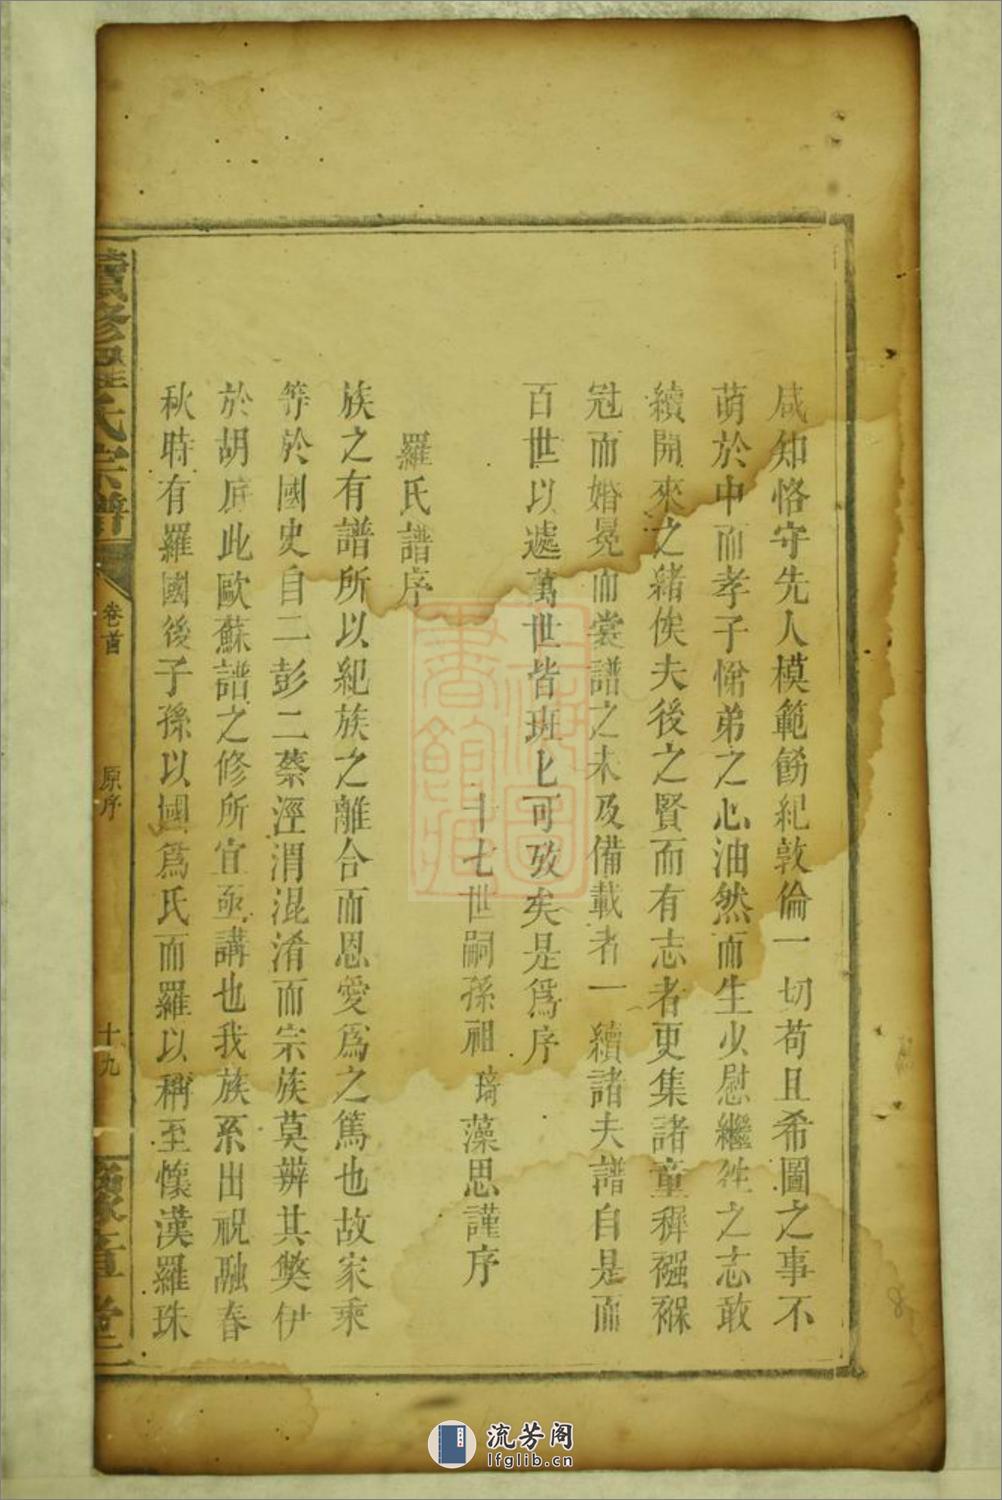 咸知恪守先人模範飭紀敦倫一切苟且希圖之事不
萌於中而孝子悌弟之心油然而生少慰繼往之志敢
續開來之緒俟夫後之賢而有志者更集諸童穉襁褓
冠而婚冕而裳譜之未及備載者一續諸夫譜自是而
百世以遞萬世皆班匕可攷矣是爲序
十七世嗣孫祖琦藻思謹序
羅氏譜序
族之有譜所以紀族之離合而恩愛爲之篤也故家乘
等於國史自二彭二蔡涇渭混淆而宗族莫辨其獘伊
於胡底此歐蘇譜之修所宜亟講也我族系出祝融春
秋時有羅國後子孫以國爲氏而羅以稱至懷漢羅珠
續修羅氏宗譜
卷首
原序
十九
豫章堂
流芳阁
lfglib.cn